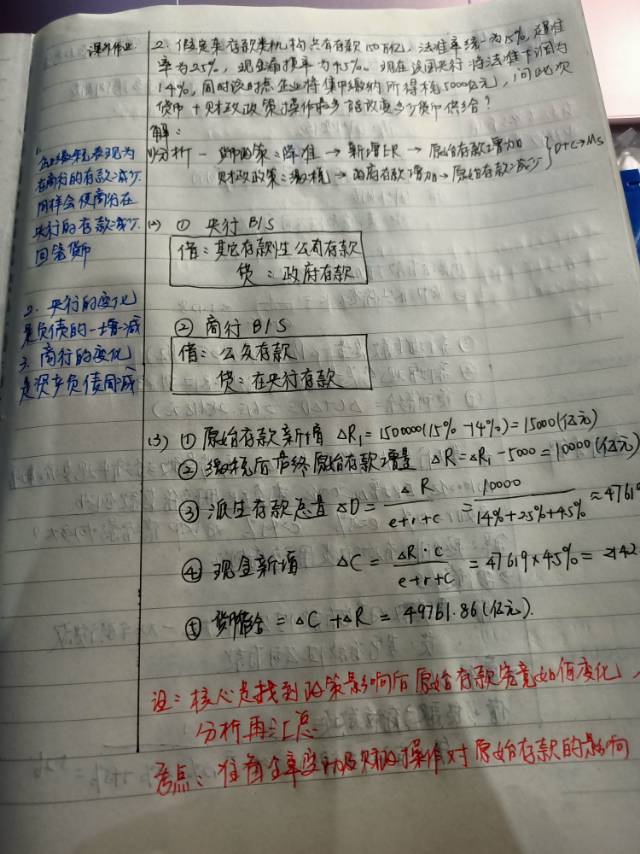 课外作业
2. 假定某存款类机构共有存款150万亿，法准率统一为15%，超准
率为2.5%，现金漏损率为4.5%。现在该国央行将法准下调为
14%，同时该时点企业将集中缴纳所得税5000亿元，问此次
货币+财政政策操作最多能改变多少货币供给？
解：
(1)分析 - 货币政策：降准 → 新增ER → 原始存款增加
财政政策：缴税 → 政府存款增加 → 原始存款减少 } D+C→Ms
企业缴税表现为
在商行的存款减少.
同样会使商行在
央行的存款减少.
回笼货币
(2) ① 央行 B/S
借：其它存款性公司存款
贷：政府存款
2. 央行的变化
是负债的一增一减
② 商行 B/S
3. 商行的变化
是资产负债同减
借：公众存款
贷：在央行存款
(3) ① 原始存款新增 ΔR₁=1500000(15%-14%)=15000(亿元)
② 缴税后最终原始存款增量 ΔR=ΔR₁-5000=10000(亿元)
③ 派生存款总量 ΔD= ΔR / e+r+c = 10000 / 14%+2.5%+4.5% ≈4761
④ 现金新增 ΔC= ΔR·c / e+r+c =47619×4.5%=2142
⑤ = ΔC+ΔR=49761.86(亿元).
注：核心是找到政策影响后原始存款究竟如何变化，
分析再汇总
考点：准备金率变动及财政操作对原始存款的影响